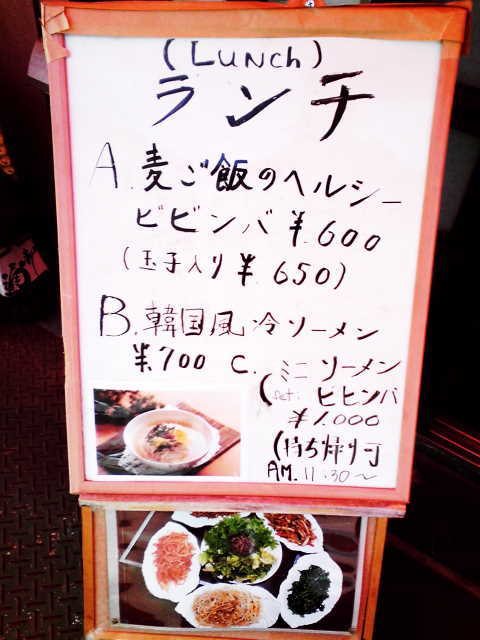 (Lunch)
ランチ
A.麦ご飯のヘルシー
ビビンバ ¥.600
(玉子入り ¥.650)
B.韓国風冷ソーメン
¥.700 C. ミニソーメン
(set: ビビンバ
¥1.000
(持ち帰り可
AM.11.30〜